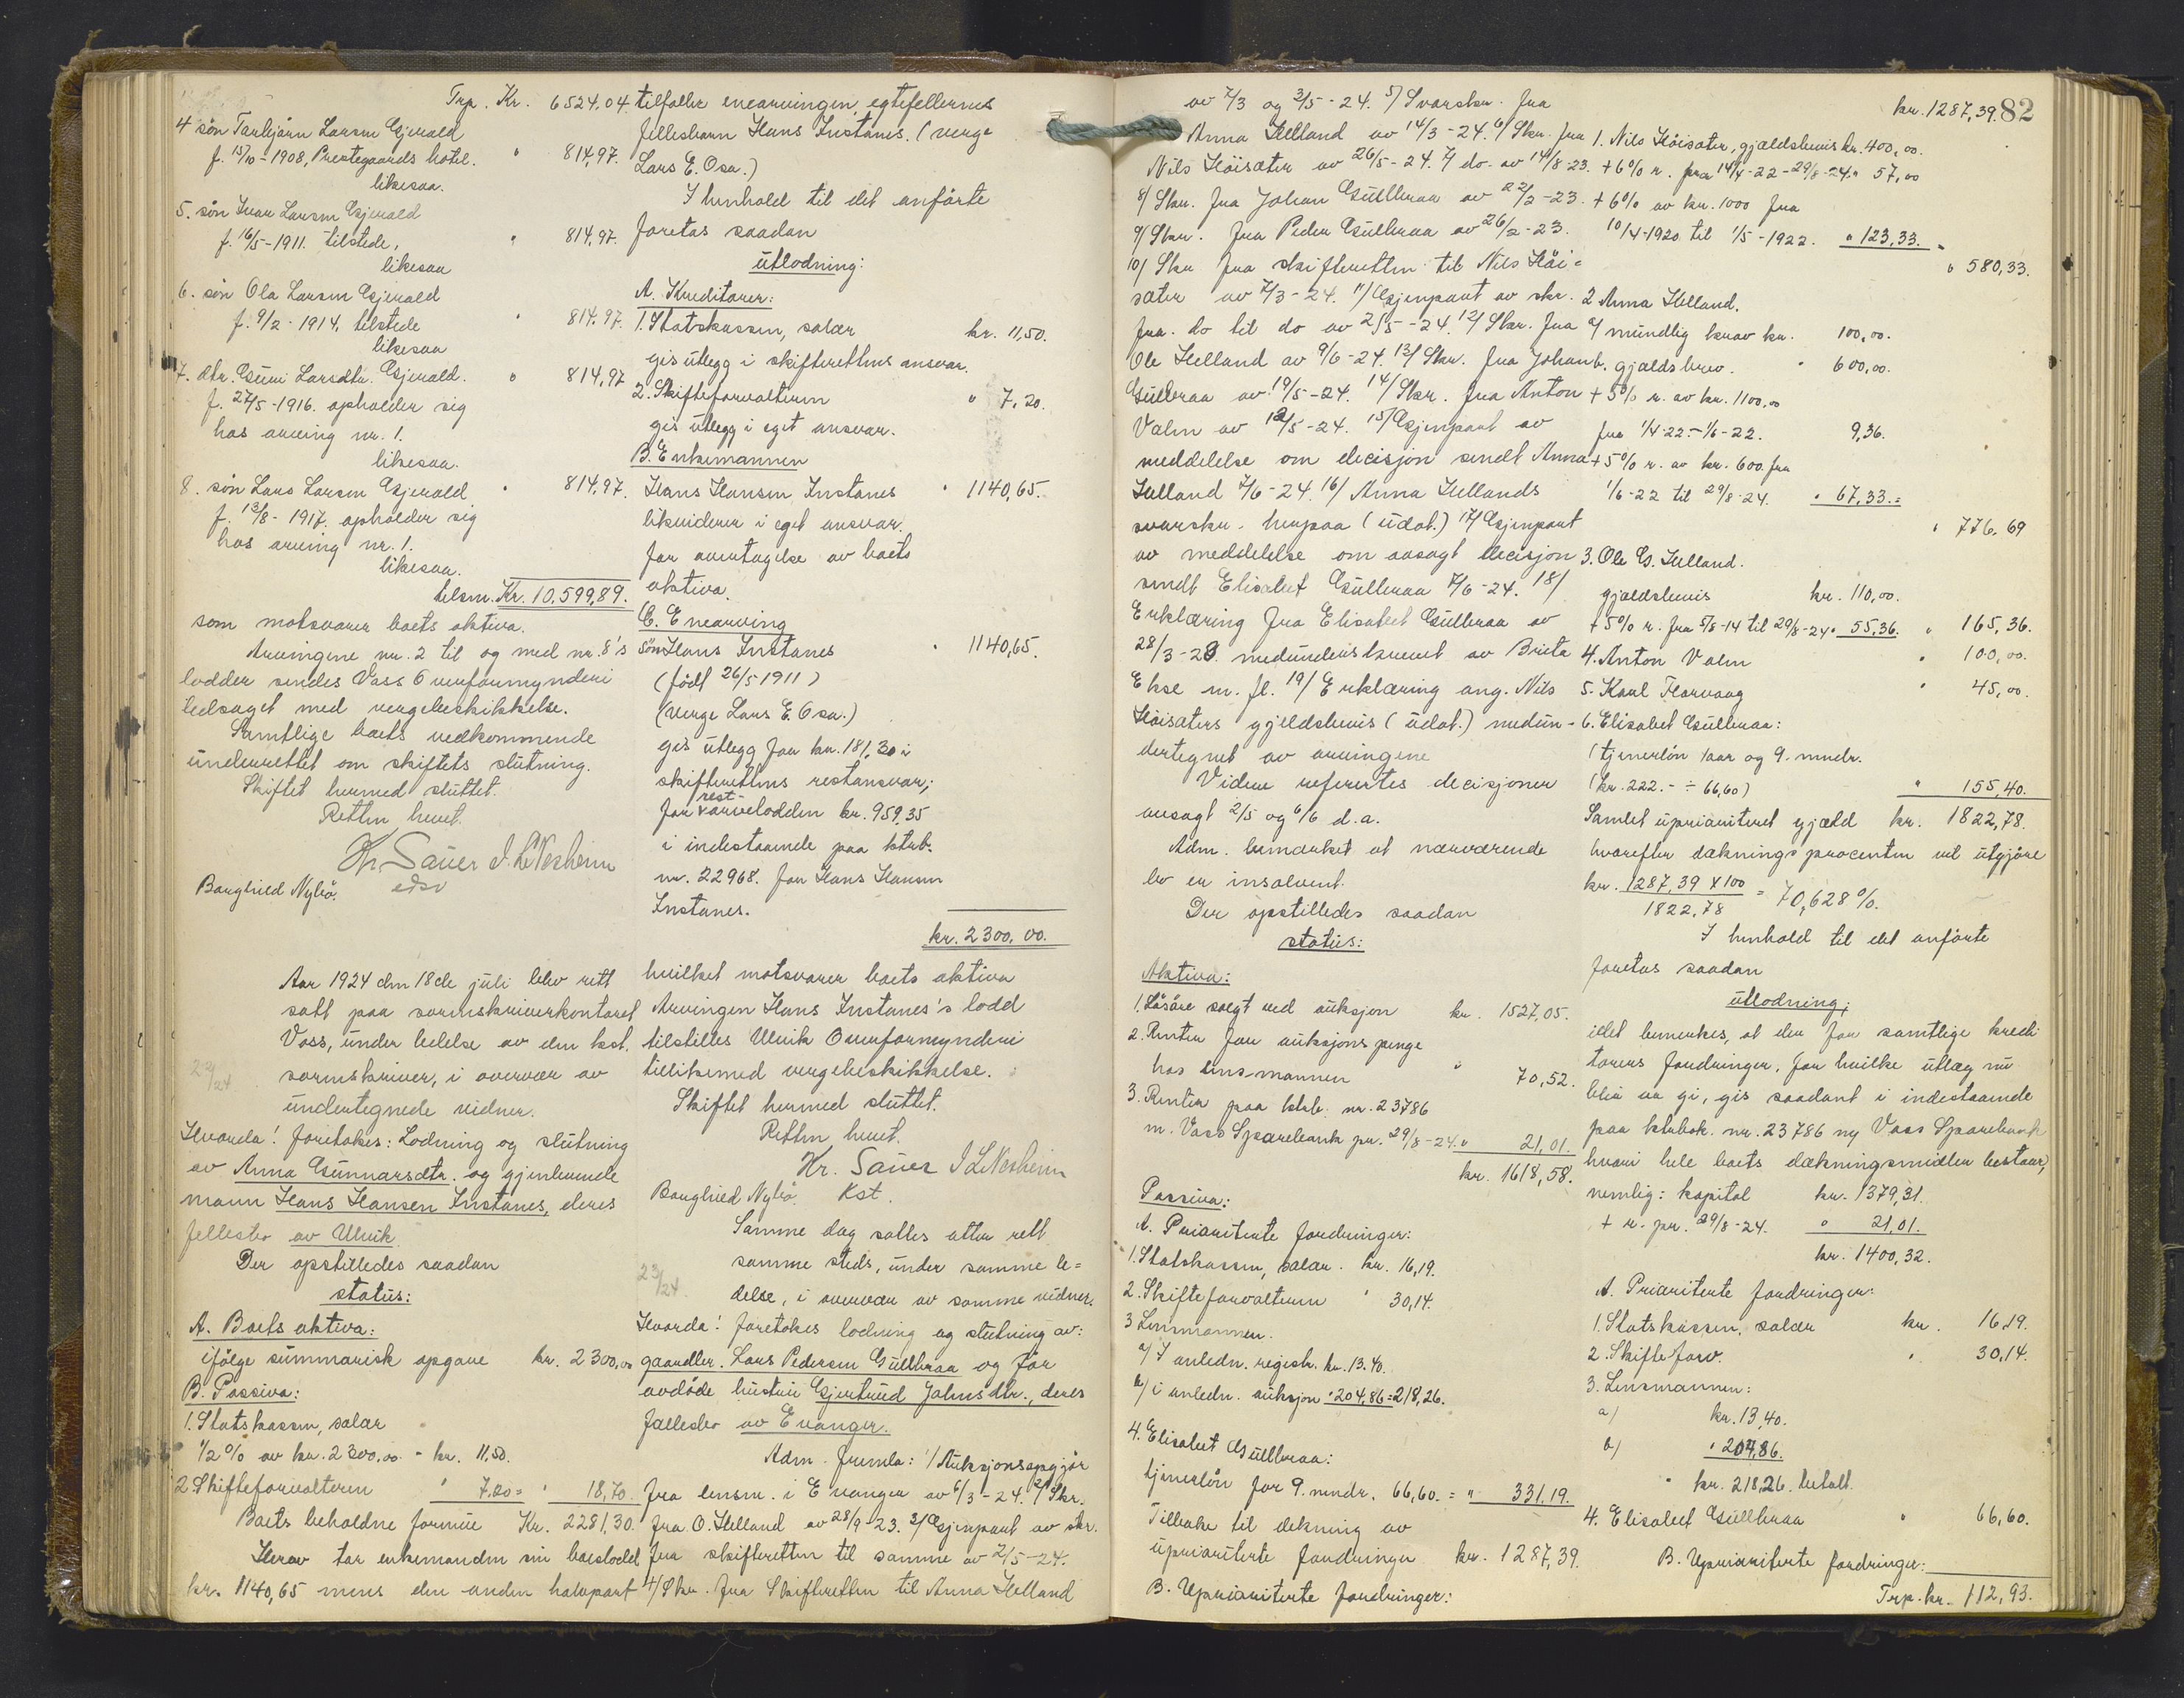 Trp. Kr. 6524.04
4 søn Torbjørn Larsen Gjerald
f. 15/10-1908, Prestegaards hotel. " 814,97.
likesaa.
5. søn Ivar Larsen Gjerald
f. 16/5-1911. tilstede, " 814,97.
likesaa
6. søn Ola Larsen Gjerald
f. 9/2-1914, tilstede " 814,97.
likesaa
7. dtr. Guri Larsdtr. Gjerald. " 814,97
f. 27/5-1916. opholder sig
hos arving nr. 1.
likesaa.
8. søn Lars Larsen Gjerald " 814,97.
f. 13/8-1917. opholder sig
hos arving nr. 1.
likesaa.
tilsm. Kr. 10.599,89.
som motsvarer boets aktiva.
Arvingene nr. 2 til og med nr. 8's
lodder sendes Voss Overformynderi
ledsaget med vergebeskikkelse.
Samtlige boets vedkommende
underrettet om skiftets slutning.
Skiftet hermed sluttet.
Retten hevet.
Kr. Sauer J. L. Nesheim
edsv
Borghild Nybø.
Aar 1924 den 18de juli blev rett
satt paa sorenskriverkontoret
Voss, under ledelse av den kst.
22/24 sorenskriver, i overvær av
undertegnede vidner.
Hvorda! foretokes: Lodning og slutning
av Anna Gunnarsdtr. og gjenlevende
mann Hans Hansen Instanes, deres
fellesbo av Ulvik
Der opstilledes saadan
status:
A. Boets aktiva:
ifølge summarisk opgave kr. 2300,00
B. Passiva:
1. Statskassen, salær
1/2% av kr. 2300,00 - kr. 11,50.
2 Skifteforvalteren " 7.20 = " 18,70.
Boets beholdne formue Kr. 2281,30.
Herav tar enkemanden sin boeslodd
kr. 1140,65 mens den anden halvpart
tilfaller enearvingen, egtefellernes
fellesbarn Hans Instanes. (verge
Lars E. Osa.)
I henhold til det anførte
foretas saadan
utlodning:
A. Kreditorer:
1. Statskassen, salær kr. 11,50.
gis utlegg i skifterettens ansvar.
2. Skifteforvalteren " 7,20.
gis utlegg i eget ansvar.
B. Enkemannen
Hans Hansen Instanes " 1140,65.
likviderer i eget ansvar
for overtagelse av boets
aktiva.
C. Enearving
søn Hans Instanes " 1140,65.
(født 26/5 1911)
(verge Lars E. Osa.)
gis utlegg for kr. 181,30 i
skifterettens restansvar;
for rest-arvelodden kr. 959,35
i indestaaende paa ktrb.
nr. 22968. for Hans Hansen
Instanes.
kr. 2300,00.
hvilket motsvarer boets aktiva
Arvingen Hans Instanes's lodd
tilstilles Ulvik Overformynderi
tillikemed vergebeskikkelse.
Skiftet hermed sluttet.
Retten hevet.
Kr. Sauer J L Nesheim
Borghild Nybø. Kst.
Samme dag sattes atter rett
samme steds, under samme le=
23/24 delse, i overvær av samme vidner.
Hvorda! foretokes lodning og slutning av:
gaardbr. Lars Pedersen Gullbraa og før
avdøde hustru Gjertrud Johnsdtr., deres
fællesbo av Evanger.
Adm. fremla: 1/ Auksjonsopgjør
fra lensm. i Evanger av 6/3-24. 2/ Skr.
fra O. Helland av 28/9-23. 3/ Gjenpart av skr.
fra skifteretten til samme av 2/5-24.
4/ Skr. fra Skifteretten til Anna Helland
82
av 7/3 og 3/5-24. 5/ Svarskr. fra
Anna Helland av 14/3-24. 6/ Skr. fra
Nils Høisæter av 26/5-24. 7/ do. av 14/8-23.
8/ Skr. fra Johan Gullbraa av 22/2-23.
9/ Skr. fra Peder Gullbraa av 26/2-23.
10/ Skr fra skifteretten til Nils Høi=
sæter av 7/3-24. 11/ Gjenpart av skr.
fra do til do av 2/5-24. 12/ Skr. fra
Ole Helland av 9/6-24. 13/ Skr. fra Johan
Gullbraa av 19/5-24. 14/ Skr. fra Anton
Valen av 12/5-24. 15/ Gjenpart av
meddelelse om decisjon sendt Anna
Helland 7/6-24. 16/ Anna Hellands
svarskr. herpaa (udat.) 17/ Gjenpart
av meddelelse om avsagt decisjon
sendt Elisabet Gullbraa 7/6-24. 18/
Erklæring fra Elisabet Gullbraa av
28/3-23. medunderskrevet av Brita
Ekse m. fl. 19/ Erklæring ang. Nils
Høisæters gjeldsbevis (udat.) medun-
dertegnet av arvingene
Videre refereertes decisjoner
avsagt 2/5 og 6/6 d.a.
Adm. bemerket at nærværende
bo er insolvent.
Der opstilledes saadan
status:
Aktiva:
1. Løsøre solgt ved auksjon kr. 1527,05.
2. Renter for auksjonspenge
hos lensmannen " 70,52.
3. Renter paa ktrb. nr. 23786
m. Voss Sparebank pr. 29/8-24. " 21,01.
kr. 1618,58.
Passiva:
A. Prioriterte fordringer:
1. Statskassen, salær. kr. 16,19.
2. Skifteforvalteren " 30,14.
3 Lensmannen.
a) I anledn. registr. kr. 13.40.
b) i anledn. auksjon " 204,86 = 218,26.
4. Elisabet Gullbraa:
tjenerløn for 9. mndr. 66,60. = " 331,19.
Tilbake til dekning av
upriorterte fordringer kr. 1287,39.
B. Upriorterte fordringer:
kr. 1287,39.
1. Nils Høisæter, gjældsbevis kr. 400,00.
+ 6% r. fra 14/4-22-29/8-24. " 57,00
+ 6% av kr. 1000 fra
10/4-1920 til 1/5-1922. " 123,33. =
" 580,33.
2 Anna Helland.
a/ mundlig krav kr. 100,00.
b. gjældsbrev. " 600,00.
+ 5% r. av kr. 1100,00
fra 1/4-22 - 1/6-22. 9,36.
+ 5% r. av kr. 600 fra
1/6-22 til 29/8-24. " 67,33. =
" 776,69
3. Ole G. Helland.
gjældsbevis kr. 110,00.
+ 5% r. fra 5/8-14 til 29/8-24 " 55,36. " 165,36.
4. Anton Valen " 100,00.
5. Karl Horvaag " 45,00.
6. Elisabet Gullbraa:
(tjenerløn 1 aar og 9. mndr.
(kr. 222.- ÷ 66,60) " 155,40.
Samlet upriorteret gjæld kr. 1822,78.
hvorefter dækningsprocenten vil utgjøre
kr. 1287,39 x 100 / 1822,78 = 70,628%.
I henhold til det anførte
foretas saadan
utlodning;
idet bemerkes, at der for samtlige kredi
torers fordringer, for hvilke utlæg nu
blir aa gi, gis saadant i indestaaende
paa ktrbok. nr. 23786 ny Voss Sparebank
hvori hele boets dækningsmidler bestaar,
nemlig: kapital kr. 1379,31.
+ r. pr. 29/8-24. " 21,01.
kr. 1400,32.
A. Prioriterte fordringer:
1. Statskassen, salær kr. 16,19.
2. Skifteforv. " 30,14.
3. Lensmannen:
a) kr. 13,40.
b) " 204,86.
" kr. 218,26. betalt.
4. Elisabet Gullbraa " 66,60.
B. Upriorterte fordringer:
Trp. kr. 112,93.